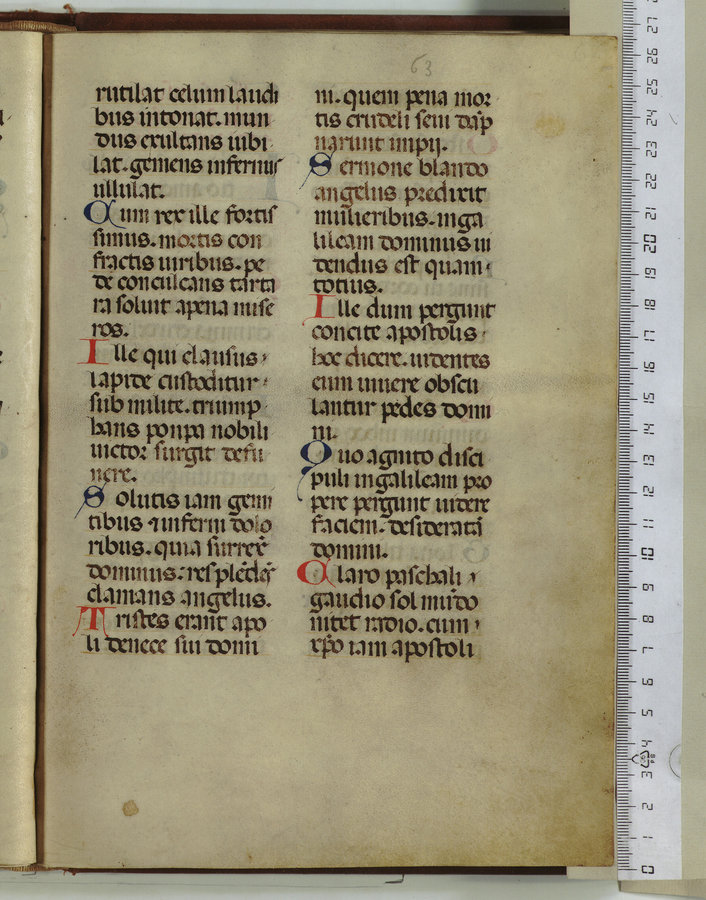 63
rutilat celum laudi
bus intonat. mun
dus exultans iubi
lat. gemens infernus
ullulat.
Cum rex ille fortis
simus. mortis con
fractis uiribus. pe
de conculcans tarta
ra soluit apena mise
ros.
Ille qui clausus
lapide custoditur
sub milite. triump
hans ponpa nobili
uictor surgit defu
nere.
Solutis iam gemi
tibus ⁊ inferni dolo
ribus. quia surrex̄
dominus: resplēdēs
clamans angelus.
Tristes erant apo
li denece sui domi
ni. quem pena mor
tis crudeli seui dāp
narunt impii.
Sermone blando
angelus predixit
mulieribus. inga
lileam dominus ui
dendus est quan
totius.
Ille dum pergunt
concite apostolis
hoc dicere. uidentes
eum uiuere obscu
lantur pedes domi
ni.
Quo agnito disci
puli ingalileam pro
pere pergunt uidere
faciem. desideratā
domini.
Claro paschali
gaudio sol mūdo
nitet radio. cum
xp̄o iam apostoli
27
26
25
24
23
22
21
20
19
18
17
16
15
14
13
12
11
10
9
8
7
6
5
4
3
2
1
0